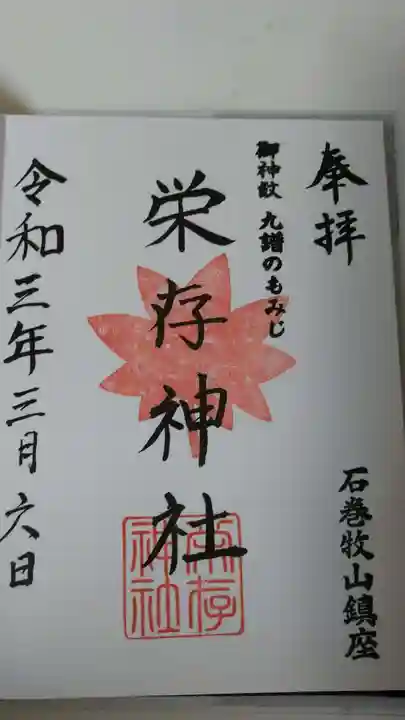 奉拝
石巻牧山鎮座
御神紋 九譜のもみじ
栄存神社
栄存神社
令和三年三月六日